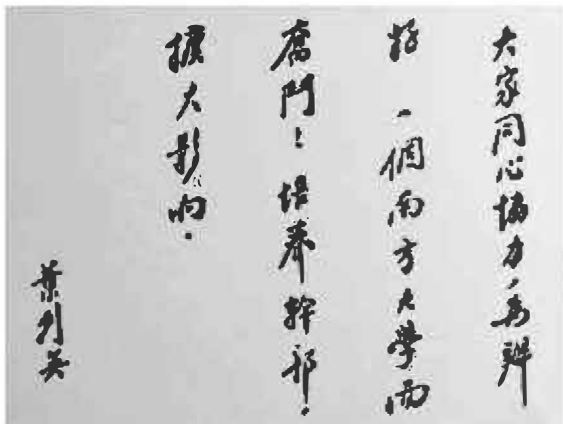 大家同心協力，為辦
好一個南方大學而
奮鬥！培養幹部，
擴大影响。
葉劍英